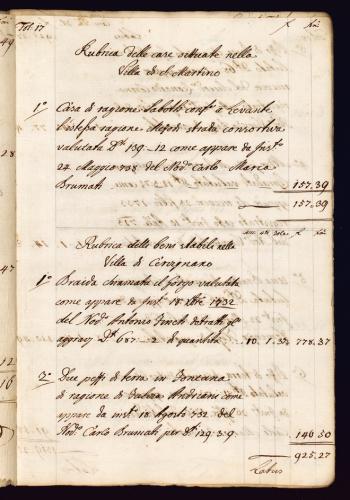 Fol. 17
f xni
Rubrica delle case situate nella
Villa di S. Martino
1º Casa di ragione conf.ª a Levante
l'istessa ragione strada consortiva
valutata D.ti 139 - 12 come appare da Inst.º
24 Maggio 738 del Nod.º Carlo Maria
Brumati 157.39
157.39
Rubrica delli beni stabili nella
Villa di Cervignano
1º Braida chiamata il valutata
come appare da Inst. 18 1732
del Nod.º Antonio detratti gl'
aggravj D.ti 687 - 2 di quantità 10. 1. 778.37
2º Due pezzi di terra in Fontana
di ragione di come
appare da inst.º 18 Agosto 732 del
Nod.º Carlo Brumati per D.ti 129:3:9 146.50
925.27
Latus
49
28
47
12
16